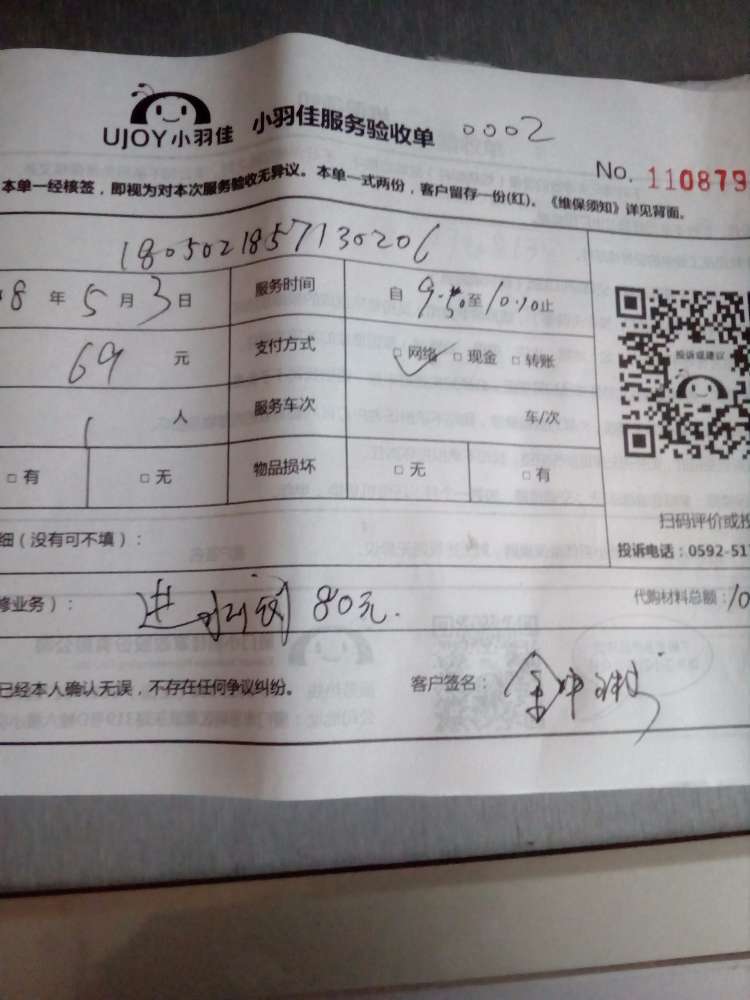 UJOY小羽佳 小羽佳服务验收单 0002
No. 110879
本单一经核签，即视为对本次服务验收无异议。本单一式两份，客户留存一份(红)。《维保须知》详见背面。
1805021857130206
8 年 5 月 3 日 服务时间 自 9.50 至 10.10 止
69 元 支付方式 □ 网络 □ 现金 □ 转账
投诉或建议
1 人 服务车次 车/次
□ 有 □ 无 物品损坏 □ 无 □ 有
细（没有可不填）：
扫码评价或投
投诉电话：0592-517
修业务）： 进水阀 80元. 代购材料总额：10
已经本人确认无误，不存在任何争议纠纷。 客户签名：